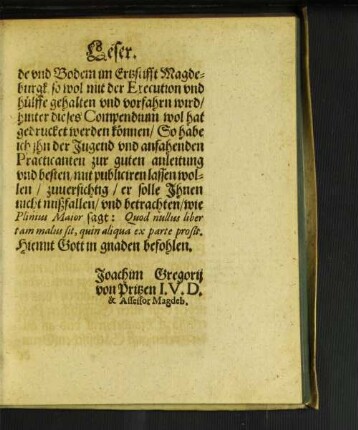 Leser.
de vnd Bodem im Ertzstifft Magde-
burgk so wol mit der Execution vnd
hülffe gehalten vnd vorfahrn wird/
hinter dieses Compendium wol hat
gedrucket werden können/ So habe
ich ihn der Jugend vnd anfahenden
Practicanten zur guten anleitung
vnd besten, mit publiciren lassen wol-
len / zuuersichtig / er solle Ihnen
nicht mißfallen/ vnd betrachten/ wie
Plinius Maior sagt: Quod nullus liber
tam malus sit, quin aliqua ex parte prosit.
Hiemit Gott in gnaden befohlen.
Joachim Gregorij
von Pritzen I. V. D.
& Assessor Magdeb.